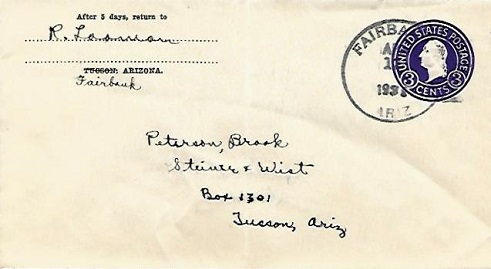 After 5 days, return to
R.
TUCSON, ARIZONA.
Fairbank
FAIRBA
A
1
193
ARIZ
UNITED STATES POSTAGE
3 CENTS 3
Peterson, Brook
Steiner & Wist
Box 1301
Tucson, Ariz